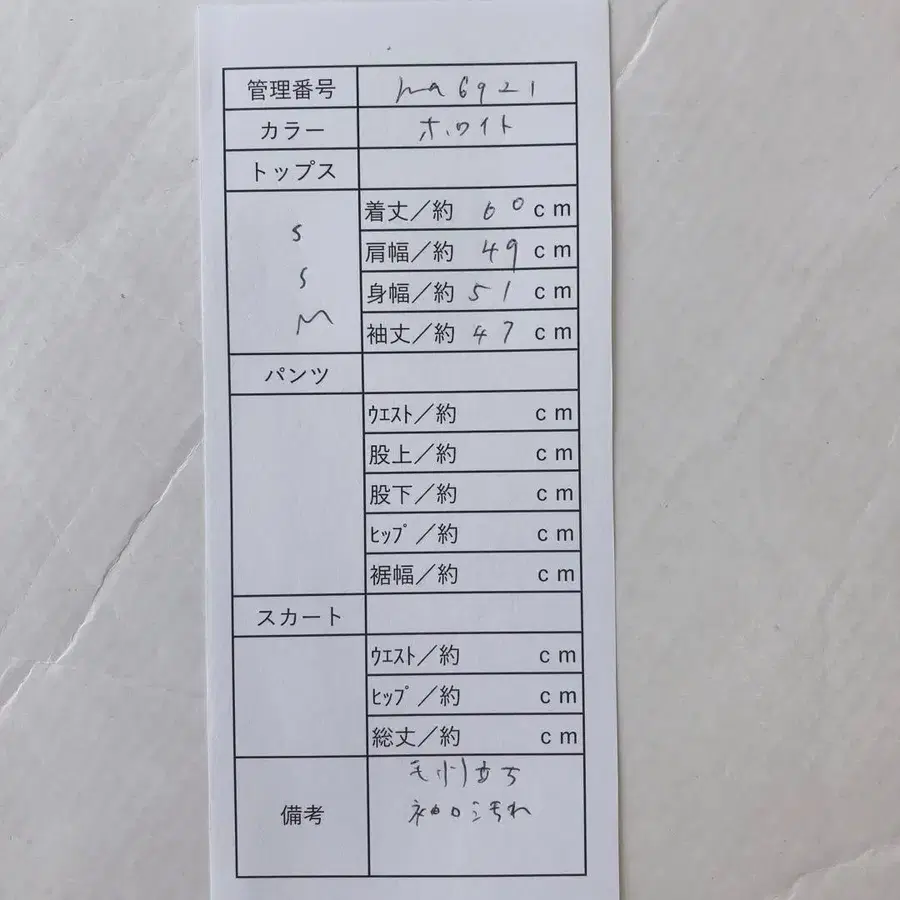 管理番号 ha6921
カラー ホワイト
トップス
S
S
M
着丈／約 60 cm
肩幅／約 49 cm
身幅／約 51 cm
袖丈／約 47 cm
パンツ
ｳｴｽﾄ／約 cm
股上／約 cm
股下／約 cm
ﾋｯﾌﾟ／約 cm
裾幅／約 cm
スカート
ｳｴｽﾄ／約 cm
ﾋｯﾌﾟ／約 cm
総丈／約 cm
備考
毛羽立ち
袖口汚れ